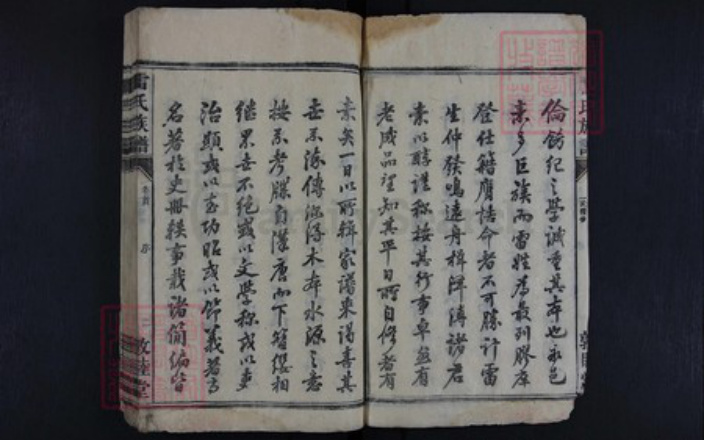 倫飭紀之學誠重其本也永邑
素多巨族而雷姓為最列膠庠
登仕籍膺誥命者不可勝計雷
生仲發鳴遠舟楫渾溥諸君
素以醇謹称按其行事卓然有
老成品望知其平日所自修者有
素矣一日以所輯家譜來謁喜其
世系流傳深得木本水源之意
按系考牒自漢唐而下簪纓相
继累世不絕或以文學称或以重
治顯或以書功昭或以節義著而
名著於史册軼事載諸簡編皆
雷氏族譜
序
敦睦堂
氏族譜